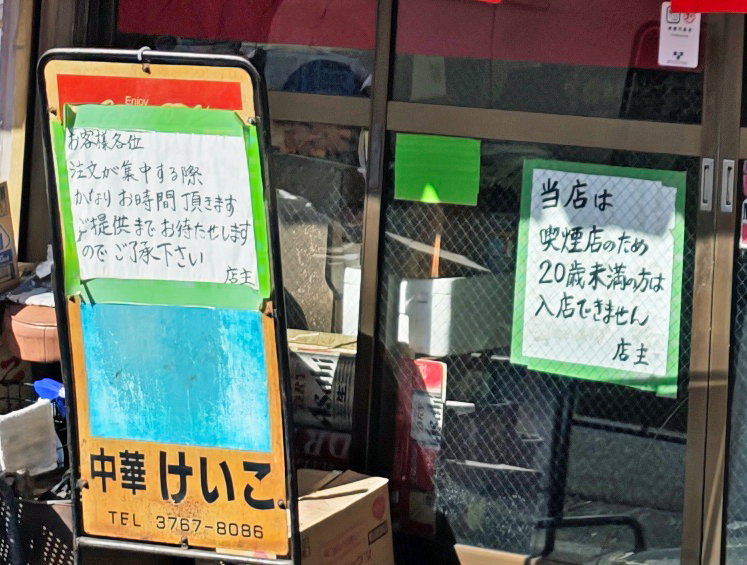 Enjoy
お客様各位
注文が集中する際
かなりお時間頂きます
ご提供までお待たせします
のでご了承下さい
店主
中華 けいこ
TEL 3767-8086
当店は
喫煙店のため
20歳未満の方は
入店できません
店主